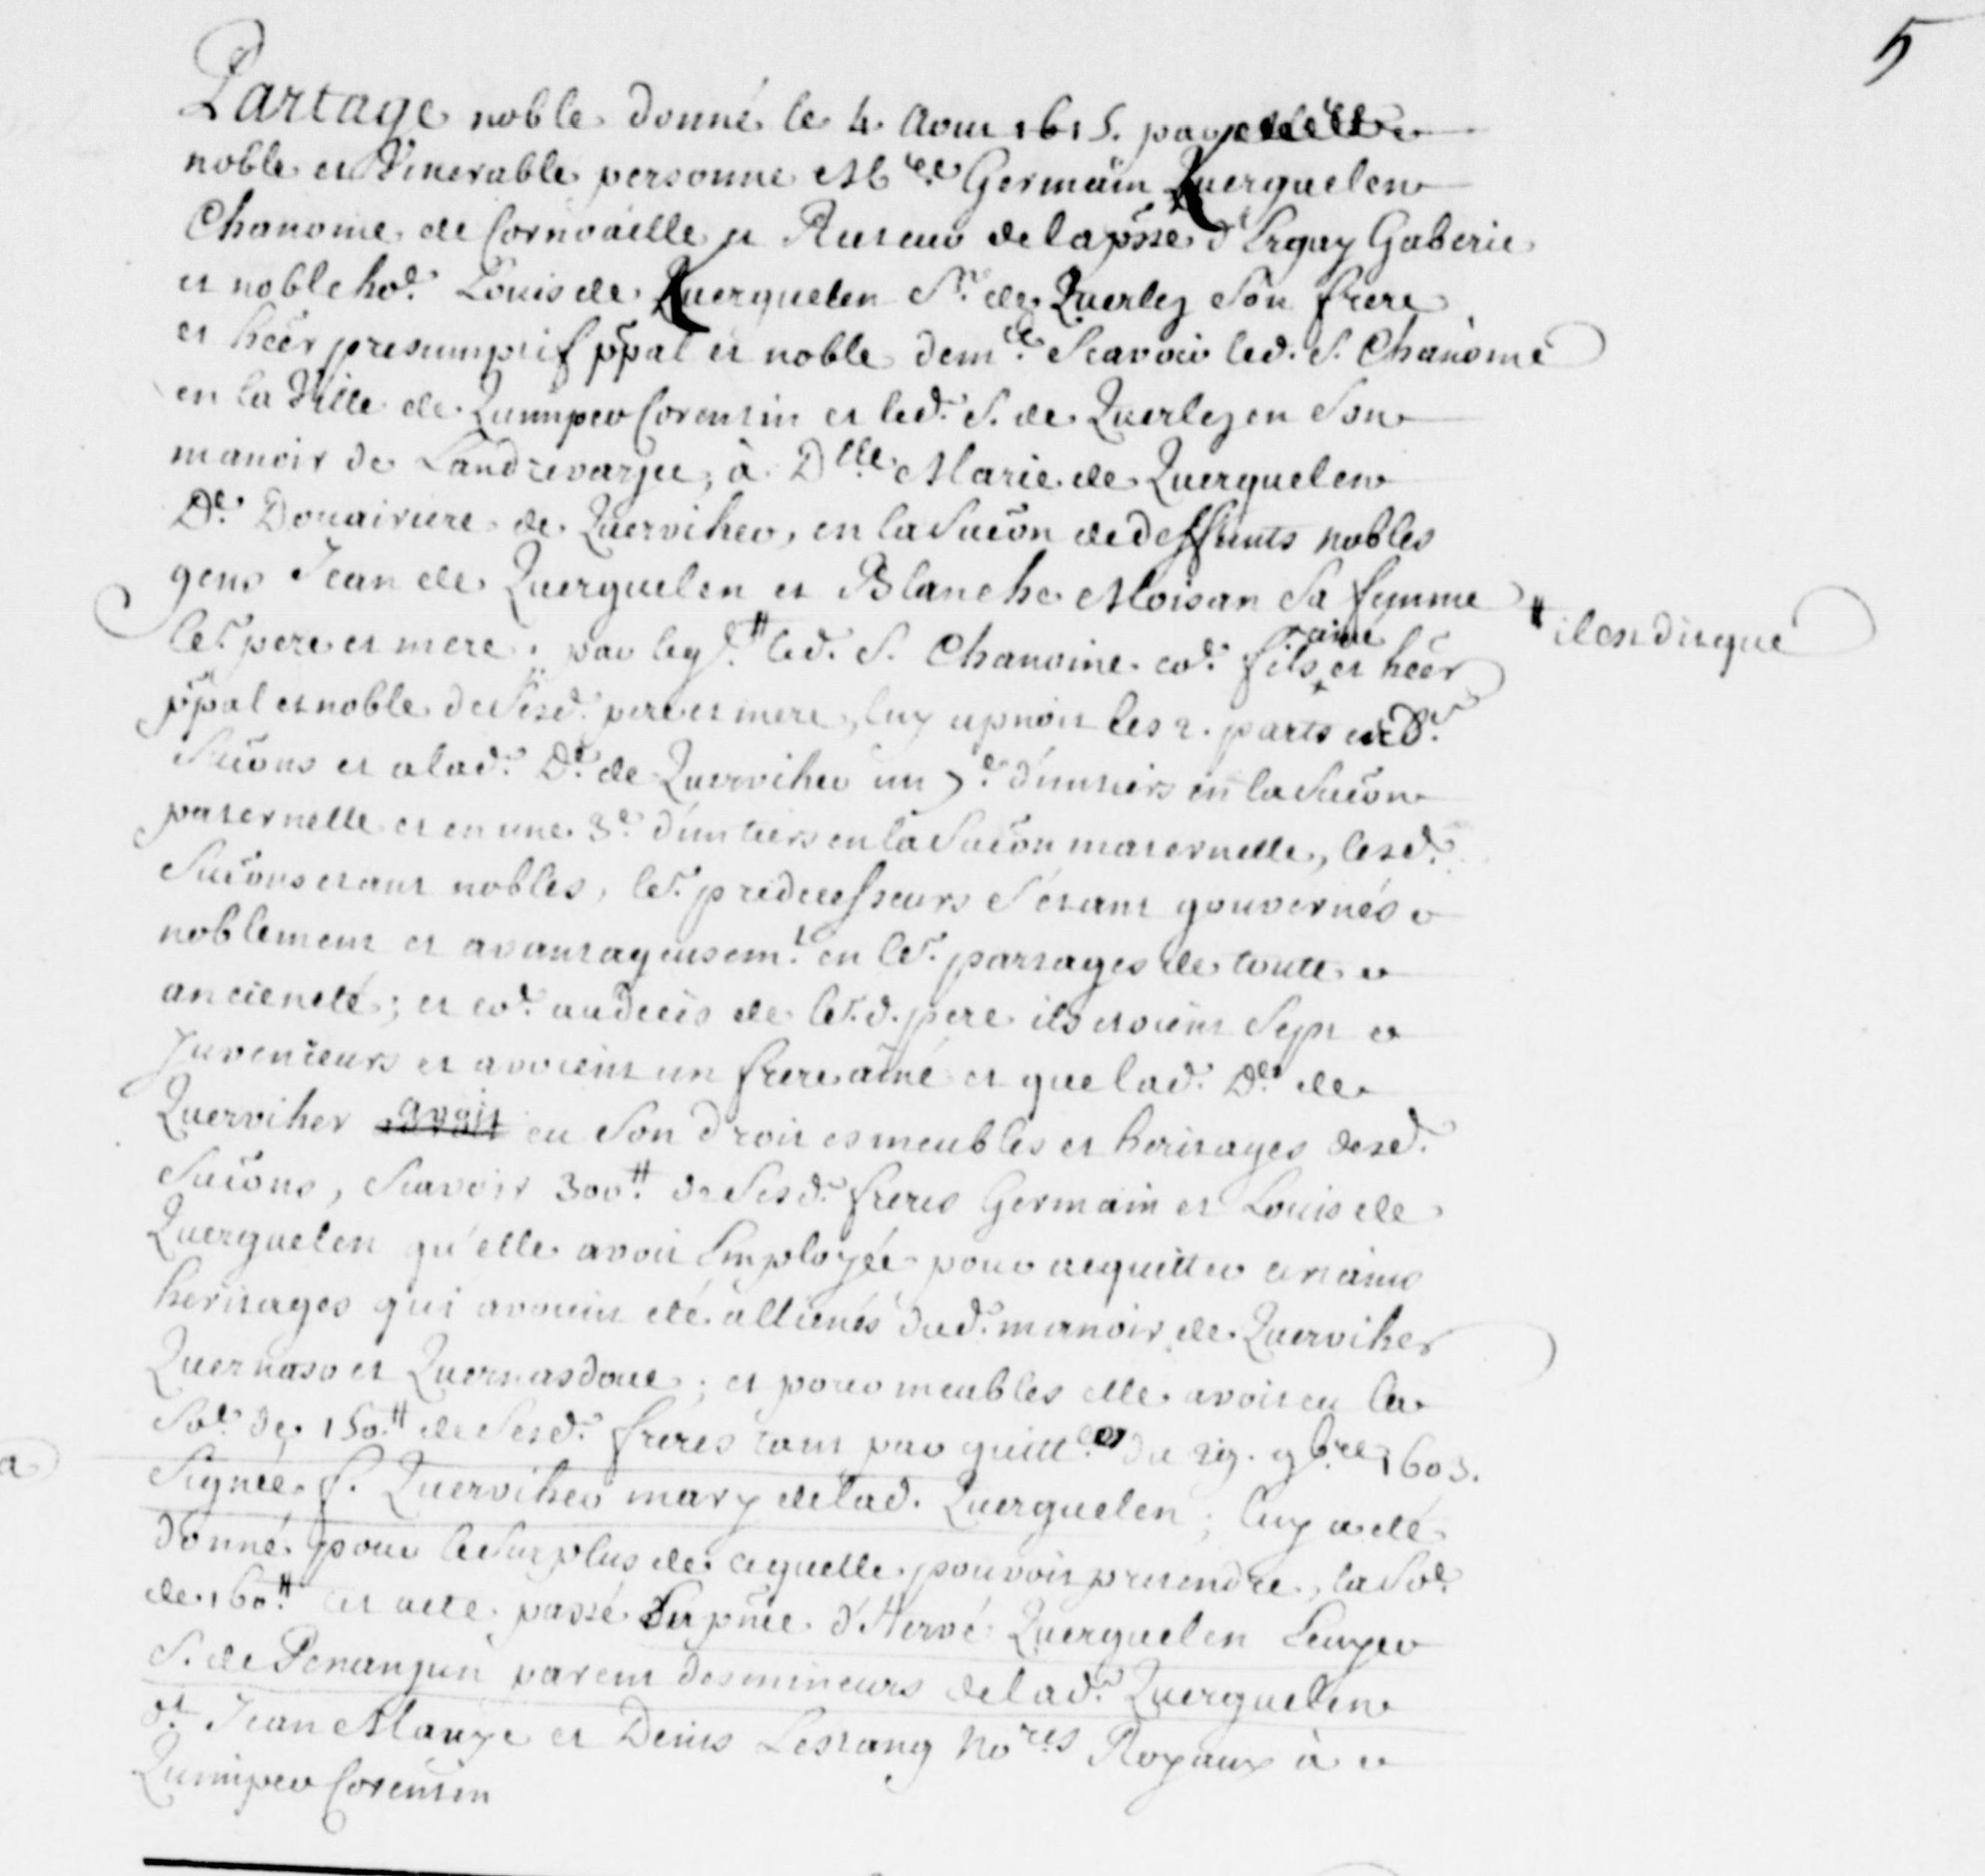 5
Partage noble donné le 4 Aout 1615. par
noble et Venerable personne M.re Germain Querguelen
Chanoine de Cornoaille et Recteur de la p̃sse d'Ergay Gaberic
et noble ho.e Louis de Querguelen S.r de Querlez Son frere
et heẽr presumptif p̃pal et noble dem.t Scavoir led. S. Chanoine
en la Ville de Quimper Corentin et led. S. de Querlez en Son
manoir de Landrevarzec, à D.lle Marie de Querguelen
D.e Douairiere de Querviher, en la Sucõn de deffunts nobles
gens Jean de Querguelen et Blanche Moisan Sa femme
le.r pere et mere. par leql. # led. S. Chanoine co.e fils + ainé et heẽr # il est dit que
p̃pal et noble de Sesd. pere et mere, luy apñoit les 2. parts esd.
Sucõns et a lad. D.e de Querviher un 7.e d'un tiers en la Sucõn
paternelle et en une 3.e d'un tiers en la Sucõn maternelle, lesd.
Sucõns etant nobles, le.r predecesseurs S'étant gouvernés
noblement et avantageusem.t en le.r partages de toute
ancieneté; et co.e au decés de le.r d. pere ils etoient Sept
Juveneurs et avoient un frere ainé et que lad. D.e de
Querviher avoit eu Son droit es meubles et heritages desd.
Sucõns, Scavoir 300.# de Sesd. freres Germain et Louis de
Querguelen qu'elle avoit Employée pour acquitter certains
heritages qui avoient eté alliénés dud. manoir de Querviher
et ; et pour meubles elle avoit eu la
So.e de 150.# de Sesd. fréres tant par quitt.ce du 29. 9bre 1603.
a
Signée f. Querviher mary de lad. Querguelen; luy a eté
donné pour le Surplus de ce qu'elle pouvoit pretendre, la So.e
de 160.# cet acte passé En p̃nce d'Hervé Querguelen Ecuyer
S. de Penanjun parent des mineurs de lad. Querguelen
d.t Jean et Denis Lestang No.res Royaux à
Quimper Corentin